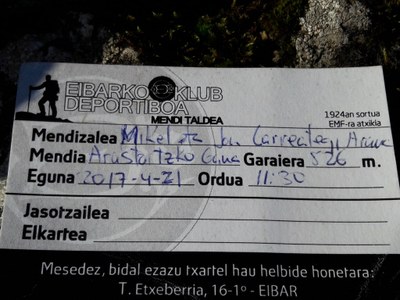 EIBARKO KLUB
DEPORTIBOA
MENDI TALDEA
1924an sortua
EMF-ra atxikia
Mendizalea Mikel eta Jn. Larreategi Arana
Mendia Garaiera 526 m.
Eguna 2017-4-21 Ordua 11:30
Jasotzailea
Elkartea
Mesedez, bidal ezazu txartel hau helbide honetara:
T. Etxeberria, 16-1º - EIBAR